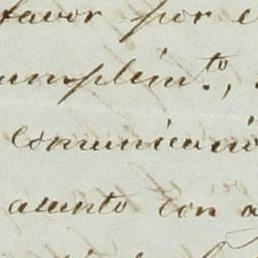 favor por e
umplim.to,
comunicació
asunto con a